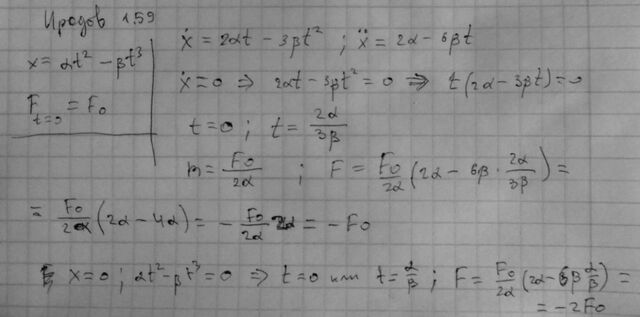 Иродов 1.59
x = αt² − βt³
F_{t=0} = F₀
ẋ = 2αt − 3βt² ; ẍ = 2α − 6βt
ẋ = 0 ⇒ 2αt − 3βt² = 0 ⇒ t(2α − 3βt) = 0
t = 0 ; t = 2α/3β
m = F₀/2α ; F = F₀/2α (2α − 6β · 2α/3β) =
= F₀/2α (2α − 4α) = − F₀/2α 2α = − F₀
x = 0 ; αt² − βt³ = 0 ⇒ t = 0 или t = α/β ; F = F₀/2α (2α − 6β α/β) =
= −2F₀